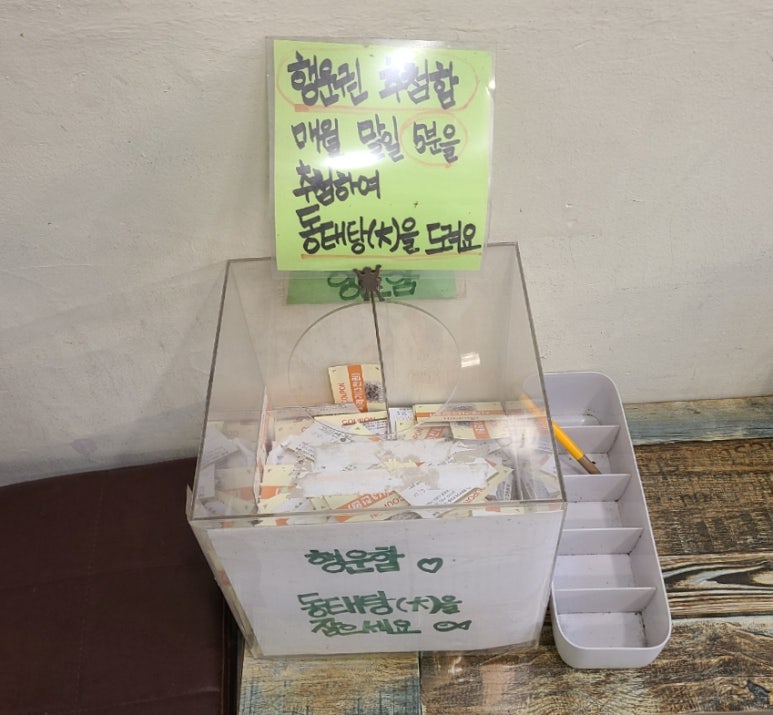 행운권 추첨함
매월 말일 5분을
추첨하여
동태탕(大)을 드려요
행운함
COUPON
COUPON
행운함 ♡
동태탕(大)을
잡으세요